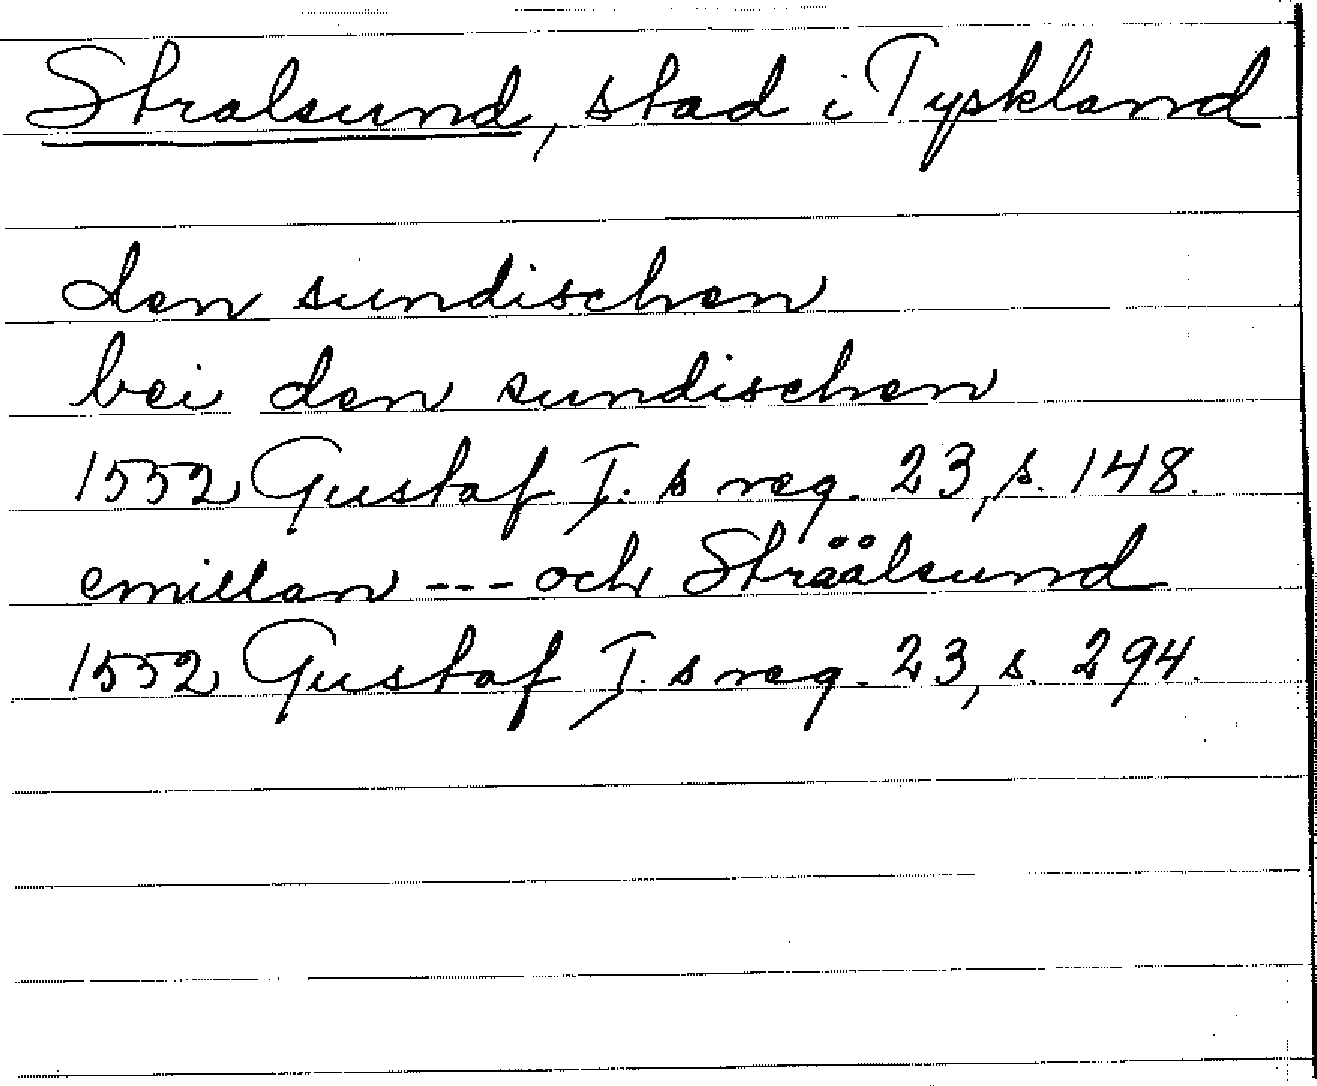 Stralsund, stad i Tyskland
den sundischen
bei den sundischen
1552 Gustaf I. s reg. 23, s. 148.
emillan --- och Sträälsund
1552 Gustaf I. s reg. 23, s. 294.